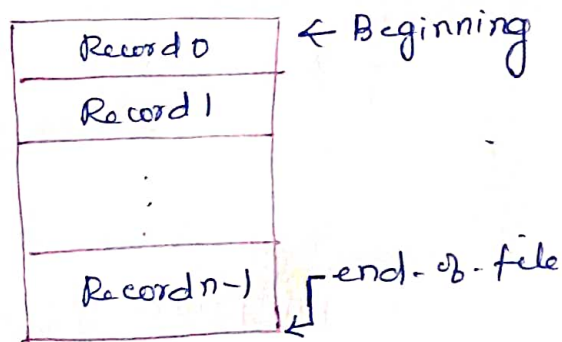 Record 0
← Beginning
Record 1
⋮
Record n-1
end-of-file